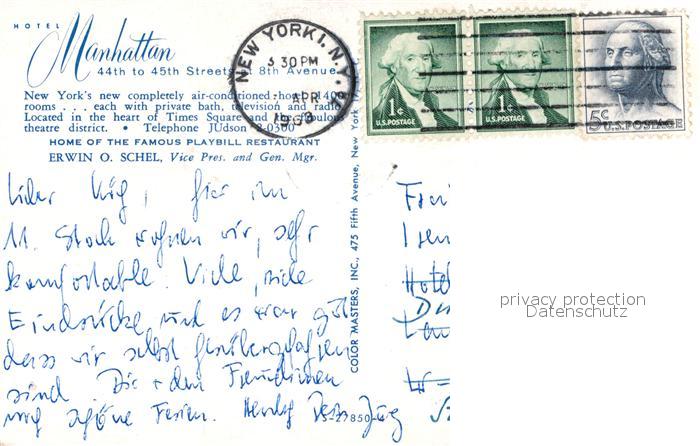 HOTEL
Manhattan
44th to 45th Streets at 8th Avenue
New York's new completely air-conditioned hotel 1400
rooms . . . each with private bath, television and radio.
Located in the heart of Times Square and the fabulous
theatre district. • Telephone JUdson 2-0300
HOME OF THE FAMOUS PLAYBILL RESTAURANT
ERWIN O. SCHEL, Vice Pres. and Gen. Mgr.
NEW YORK 1, N.Y.
3 30 PM
APR
1963
1¢
U.S. POSTAGE
1¢
U.S. POSTAGE
5¢
U.S. POSTAGE
COLOR MASTERS, INC., 475 Fifth Avenue, New York
S-27850-
hier im
11. Stock wohnen wir, sehr
komfortable. Viele, viele
Eindrücke und es war gut
dass wir selbst herübergeflogen
sind. Dir + den Freundinnen
noch schöne Ferien. Herzlich Dein
Hotel
privacy protection
Datenschutz